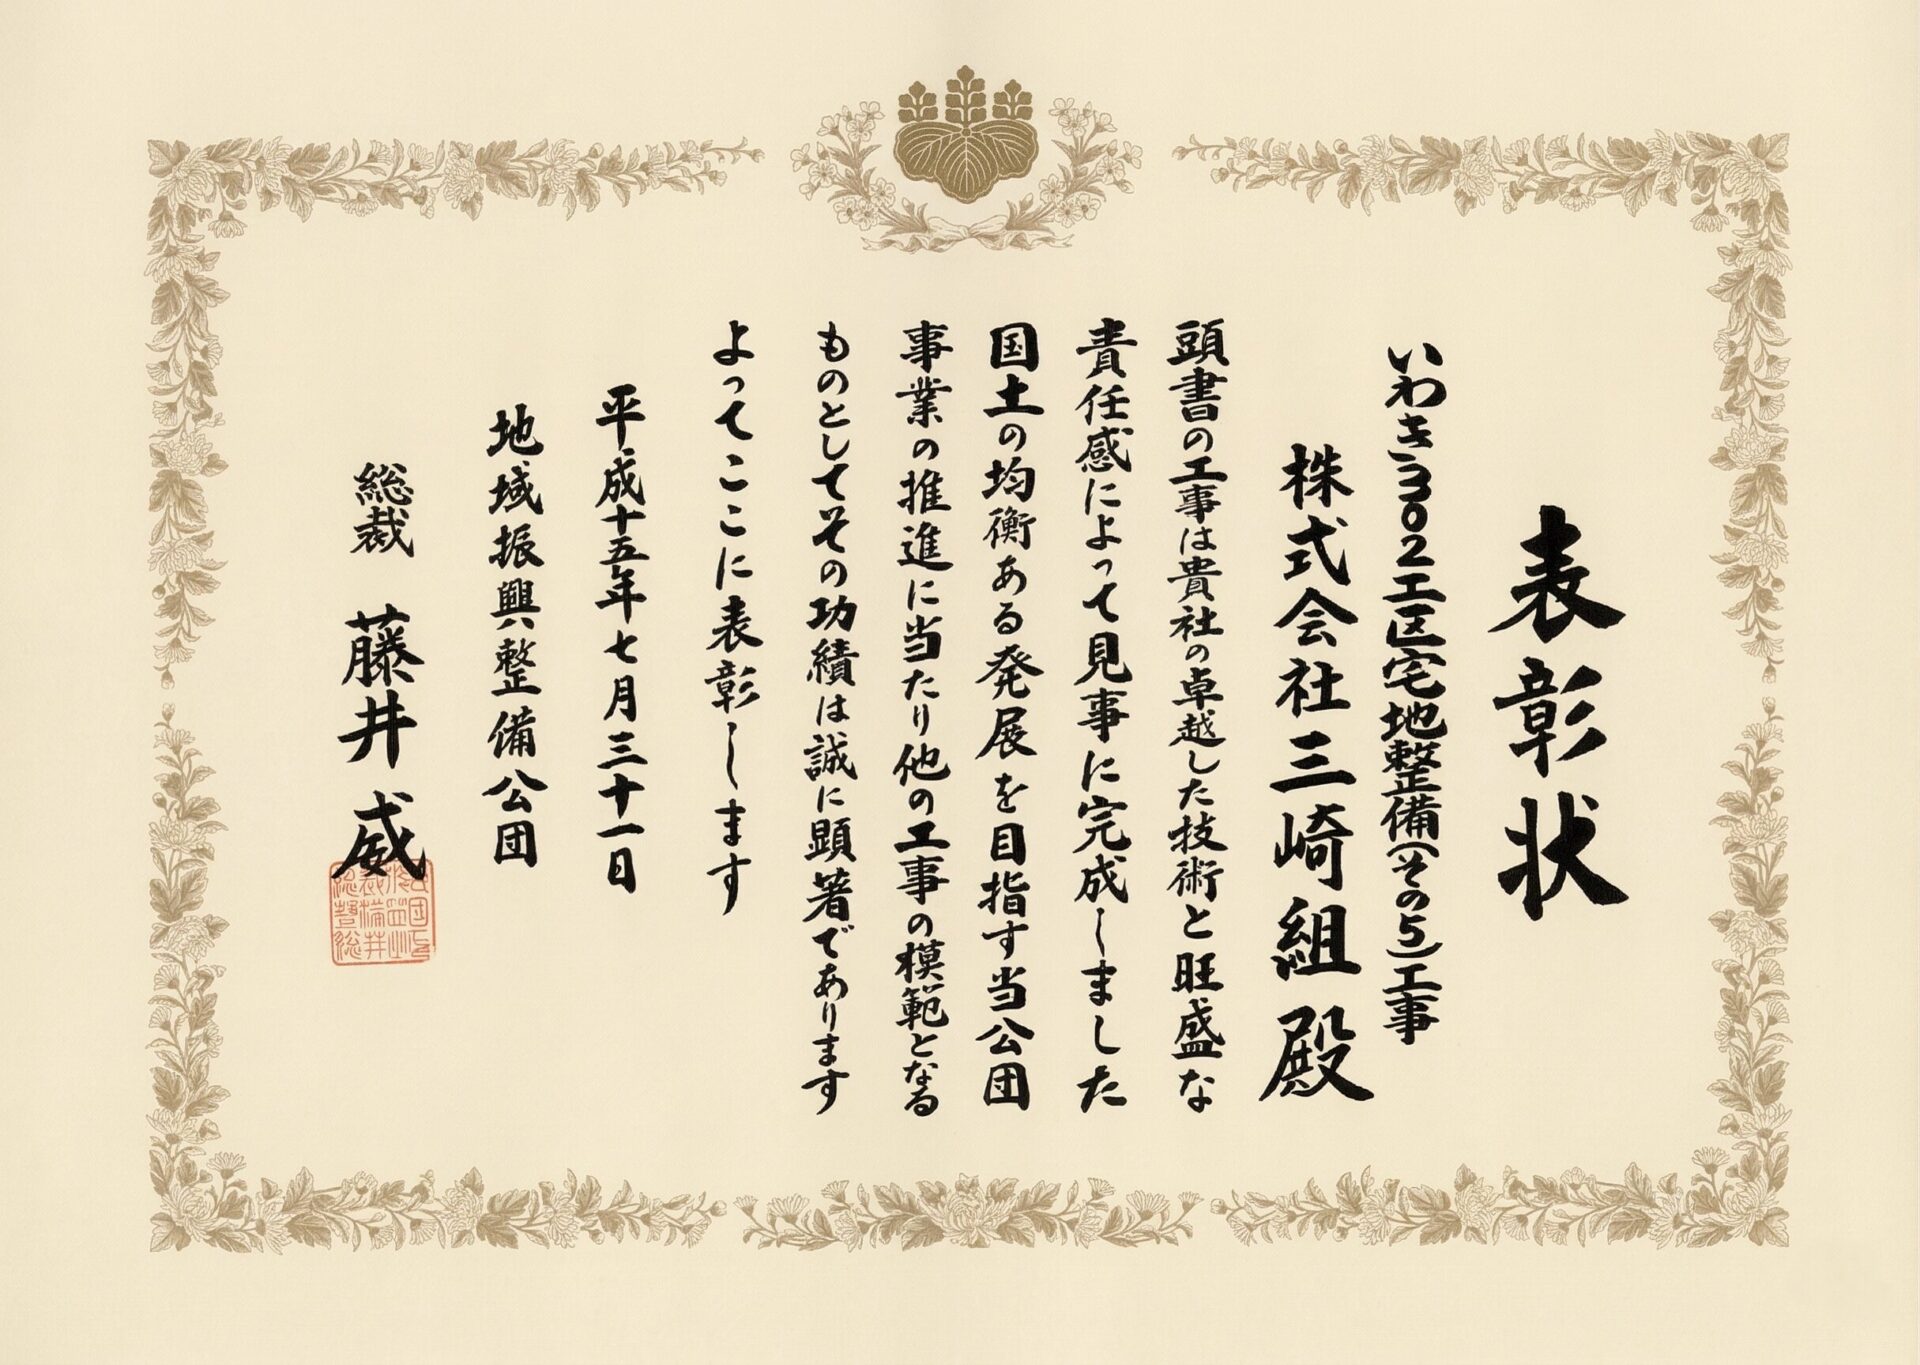 表彰状
いわき302工区宅地整備(その5)工事
株式会社三崎組殿
頭書の工事は貴社の卓越した技術と旺盛な
責任感によって見事に完成しました
国土の均衡ある発展を目指す当公団
事業の推進に当たり他の工事の模範となる
ものとしてその功績は誠に顕著であります
よってここに表彰します
平成十五年七月三十一日
地域振興整備公団
総裁 藤井威